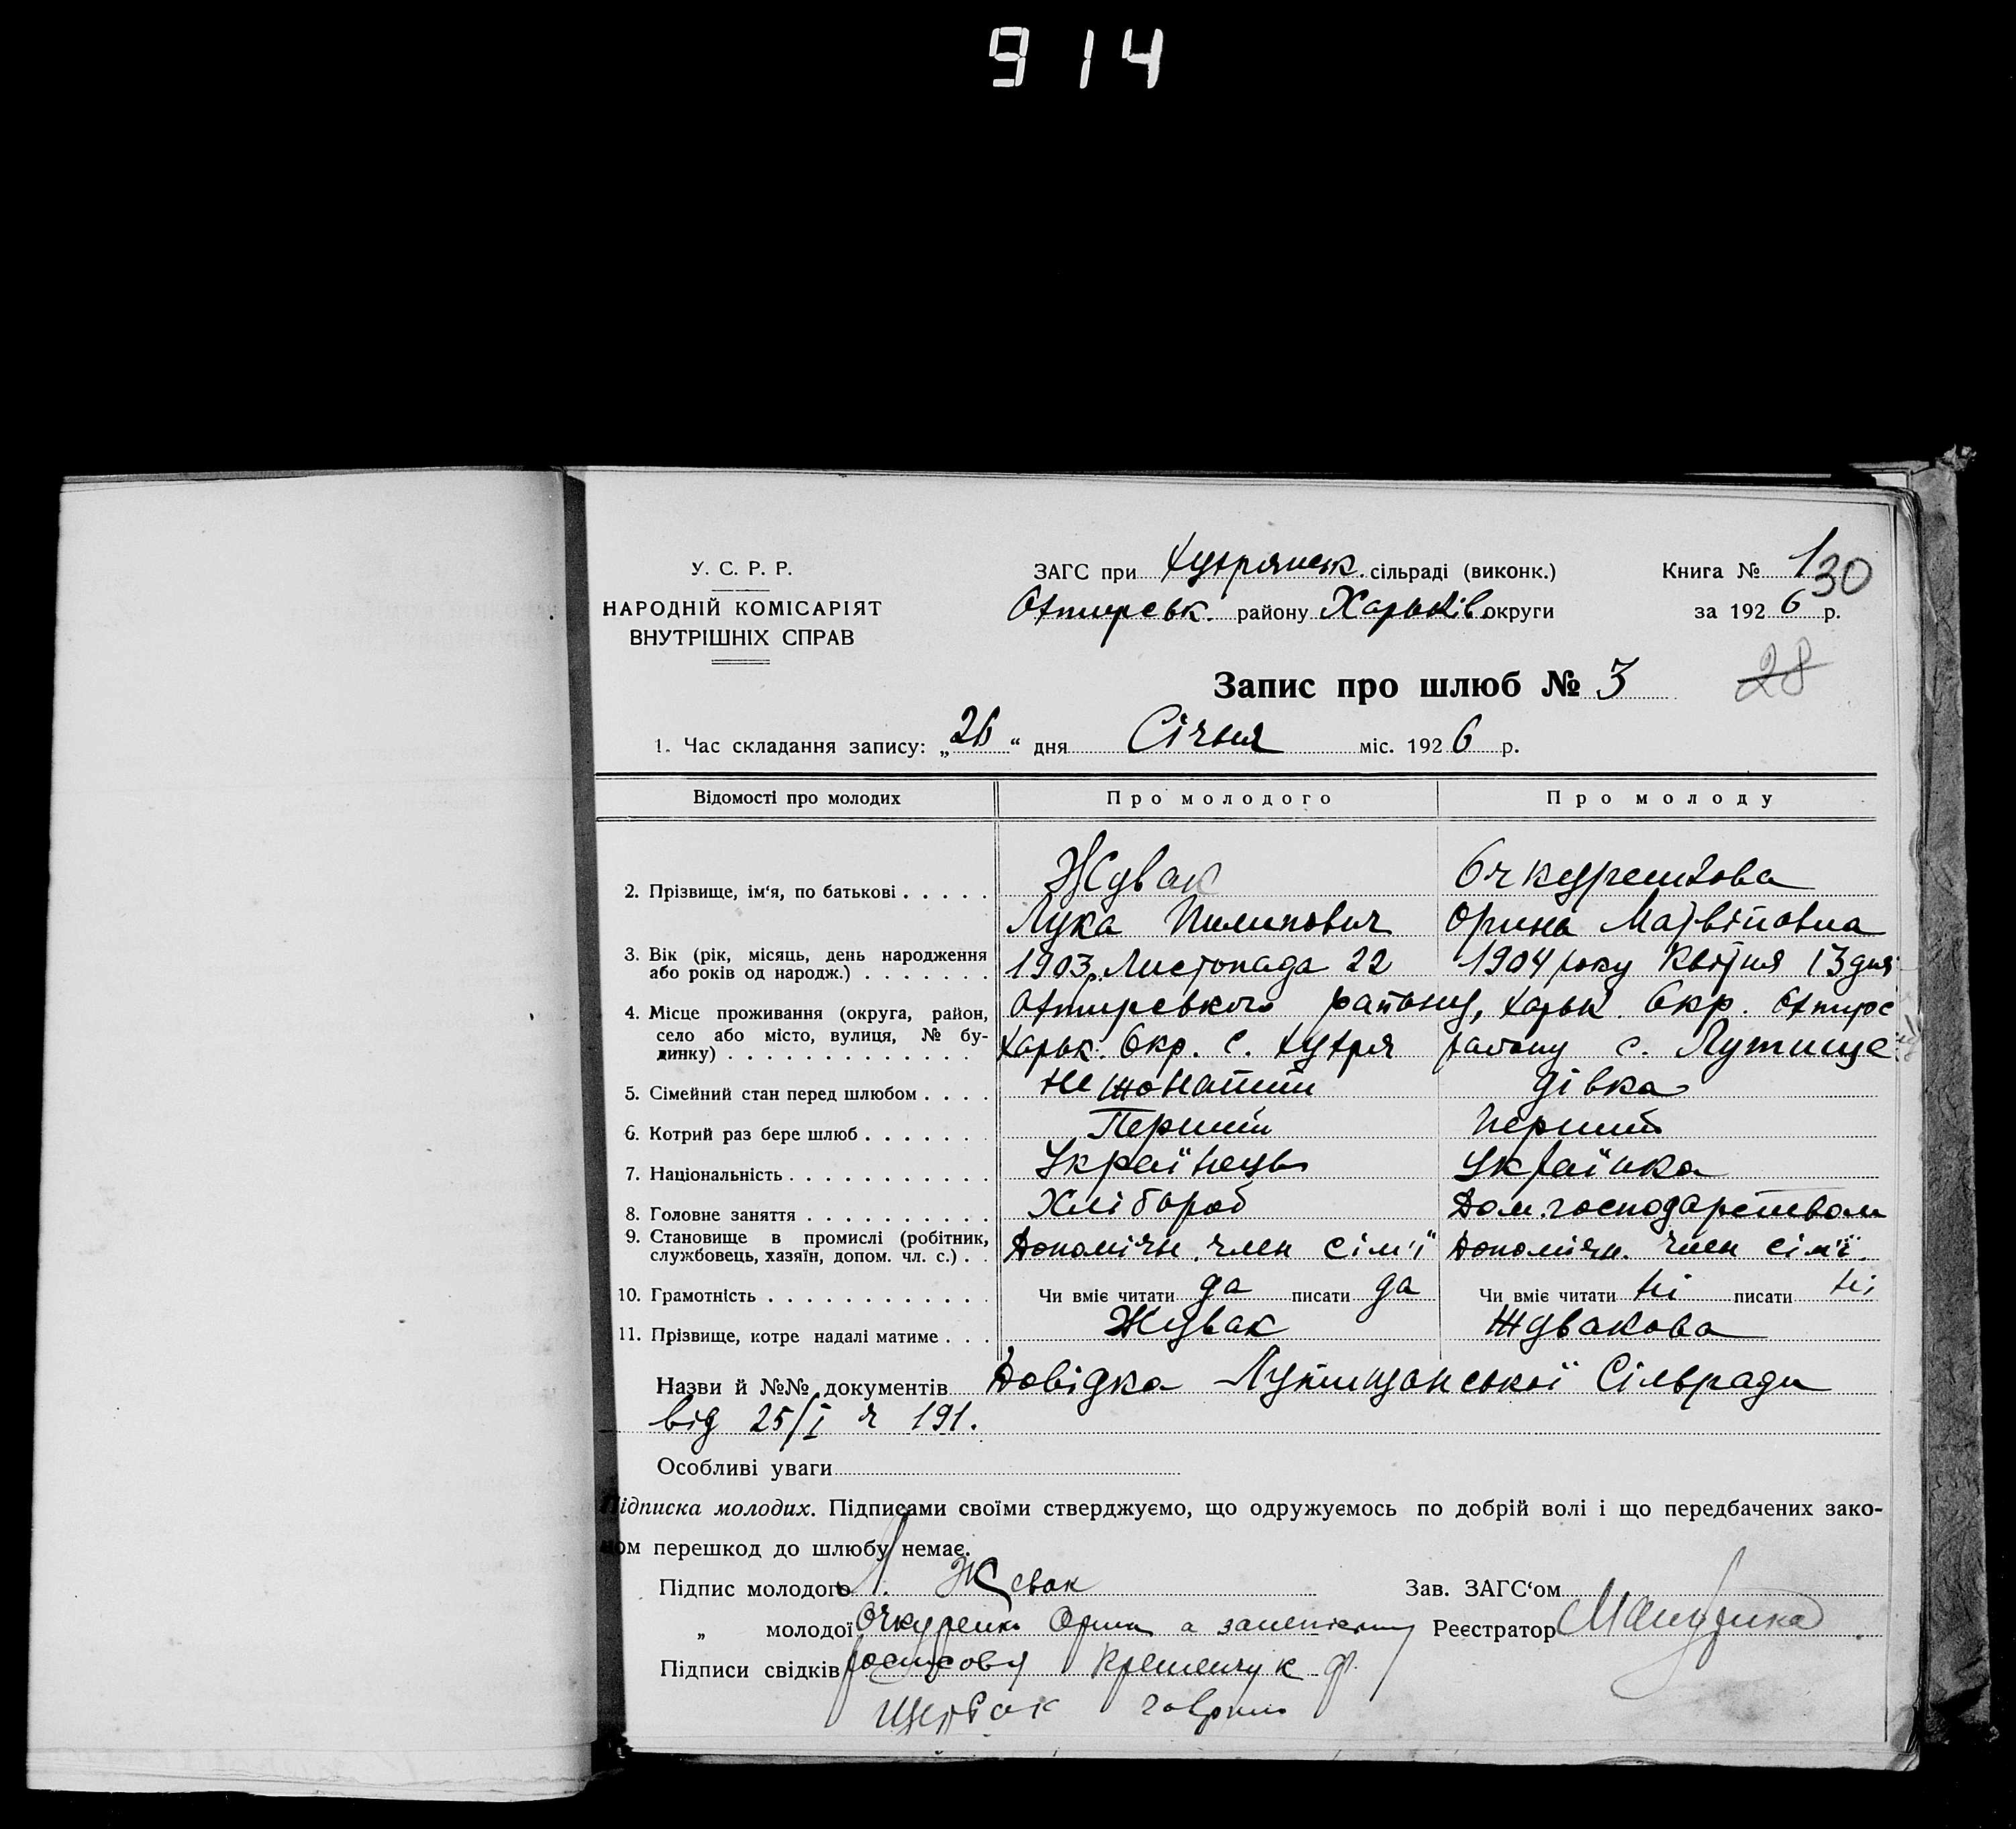 914
У. С. Р. Р.
НАРОДНІЙ КОМІСАРІЯТ
ВНУТРІШНІХ СПРАВ
ЗАГС при Хухрянськ. сільраді (виконк.)
Охтирськ. району Харьків округи
Книга № 1
30
за 1926 р.
Запис про шлюб № 3
28
1. Час складання запису: „26“ дня Січня міс. 1926 р.
Відомості про молодих
Про молодого
Про молоду
2. Прізвище, ім‘я, по батькові
Жувак
Лука Пилипович
Очкуренкова
Орина Матвіїовна
3. Вік (рік, місяць, день народження
або років од народж.)
1903 р. Листопада 22
1904 року Квітня 13 дня
4. Місце проживання (округа, район,
село або місто, вулиця, № бу-
динку)
Охтирського району,
Харьк. Окр. с. Хухря
Харьк. Окр. Охтирс
району с. Лутище
5. Сімейний стан перед шлюбом
Не жонатий
дівка
6. Котрий раз бере шлюб
Перший
перший
7. Національність
Українець
Українка
8. Головне заняття
Хлібороб
Дом. господарством
9. Становище в промислі (робітник,
службовець, хазяїн, допом. чл. с.)
Допомічн. член сім'ї
Допомічн. член сім'ї.
10. Грамотність
Чи вміє читати да писати да
Чи вміє читати ні писати ні
11. Прізвище, котре надалі матиме
Жувак
Жувакова
Назви й №№ документів Довідка Лутищанської Сільради
від 25/I ч 191.
Особливі уваги
Підписка молодих. Підписами своїми стверджуємо, що одружуємось по добрій волі і що передбачених зако-
ном перешкод до шлюбу немає.
Підпис молодого Л. Жувак
Зав. ЗАГС‘ом
„ молодої Очкуренко Орина а за
Реєстратор
Підписи свідків росписовя Кременчук Ф.
Щербак Гаврило